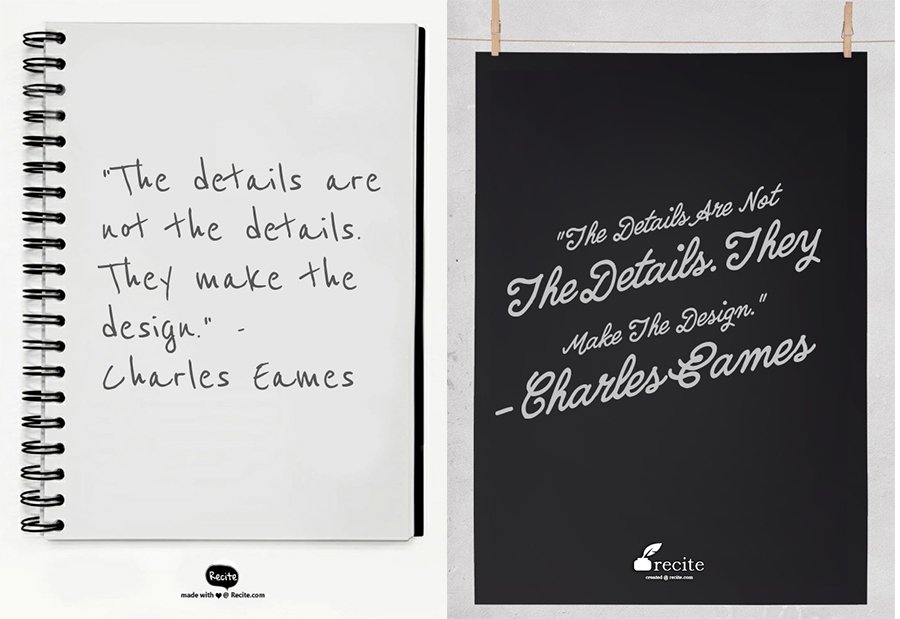 "The details are
not the details.
They make the
design." -
Charles Eames
Recite
made with ♥ @ Recite.com
"The Details Are Not
The Details. They
Make The Design."
- Charles Eames
recite
created @ recite.com